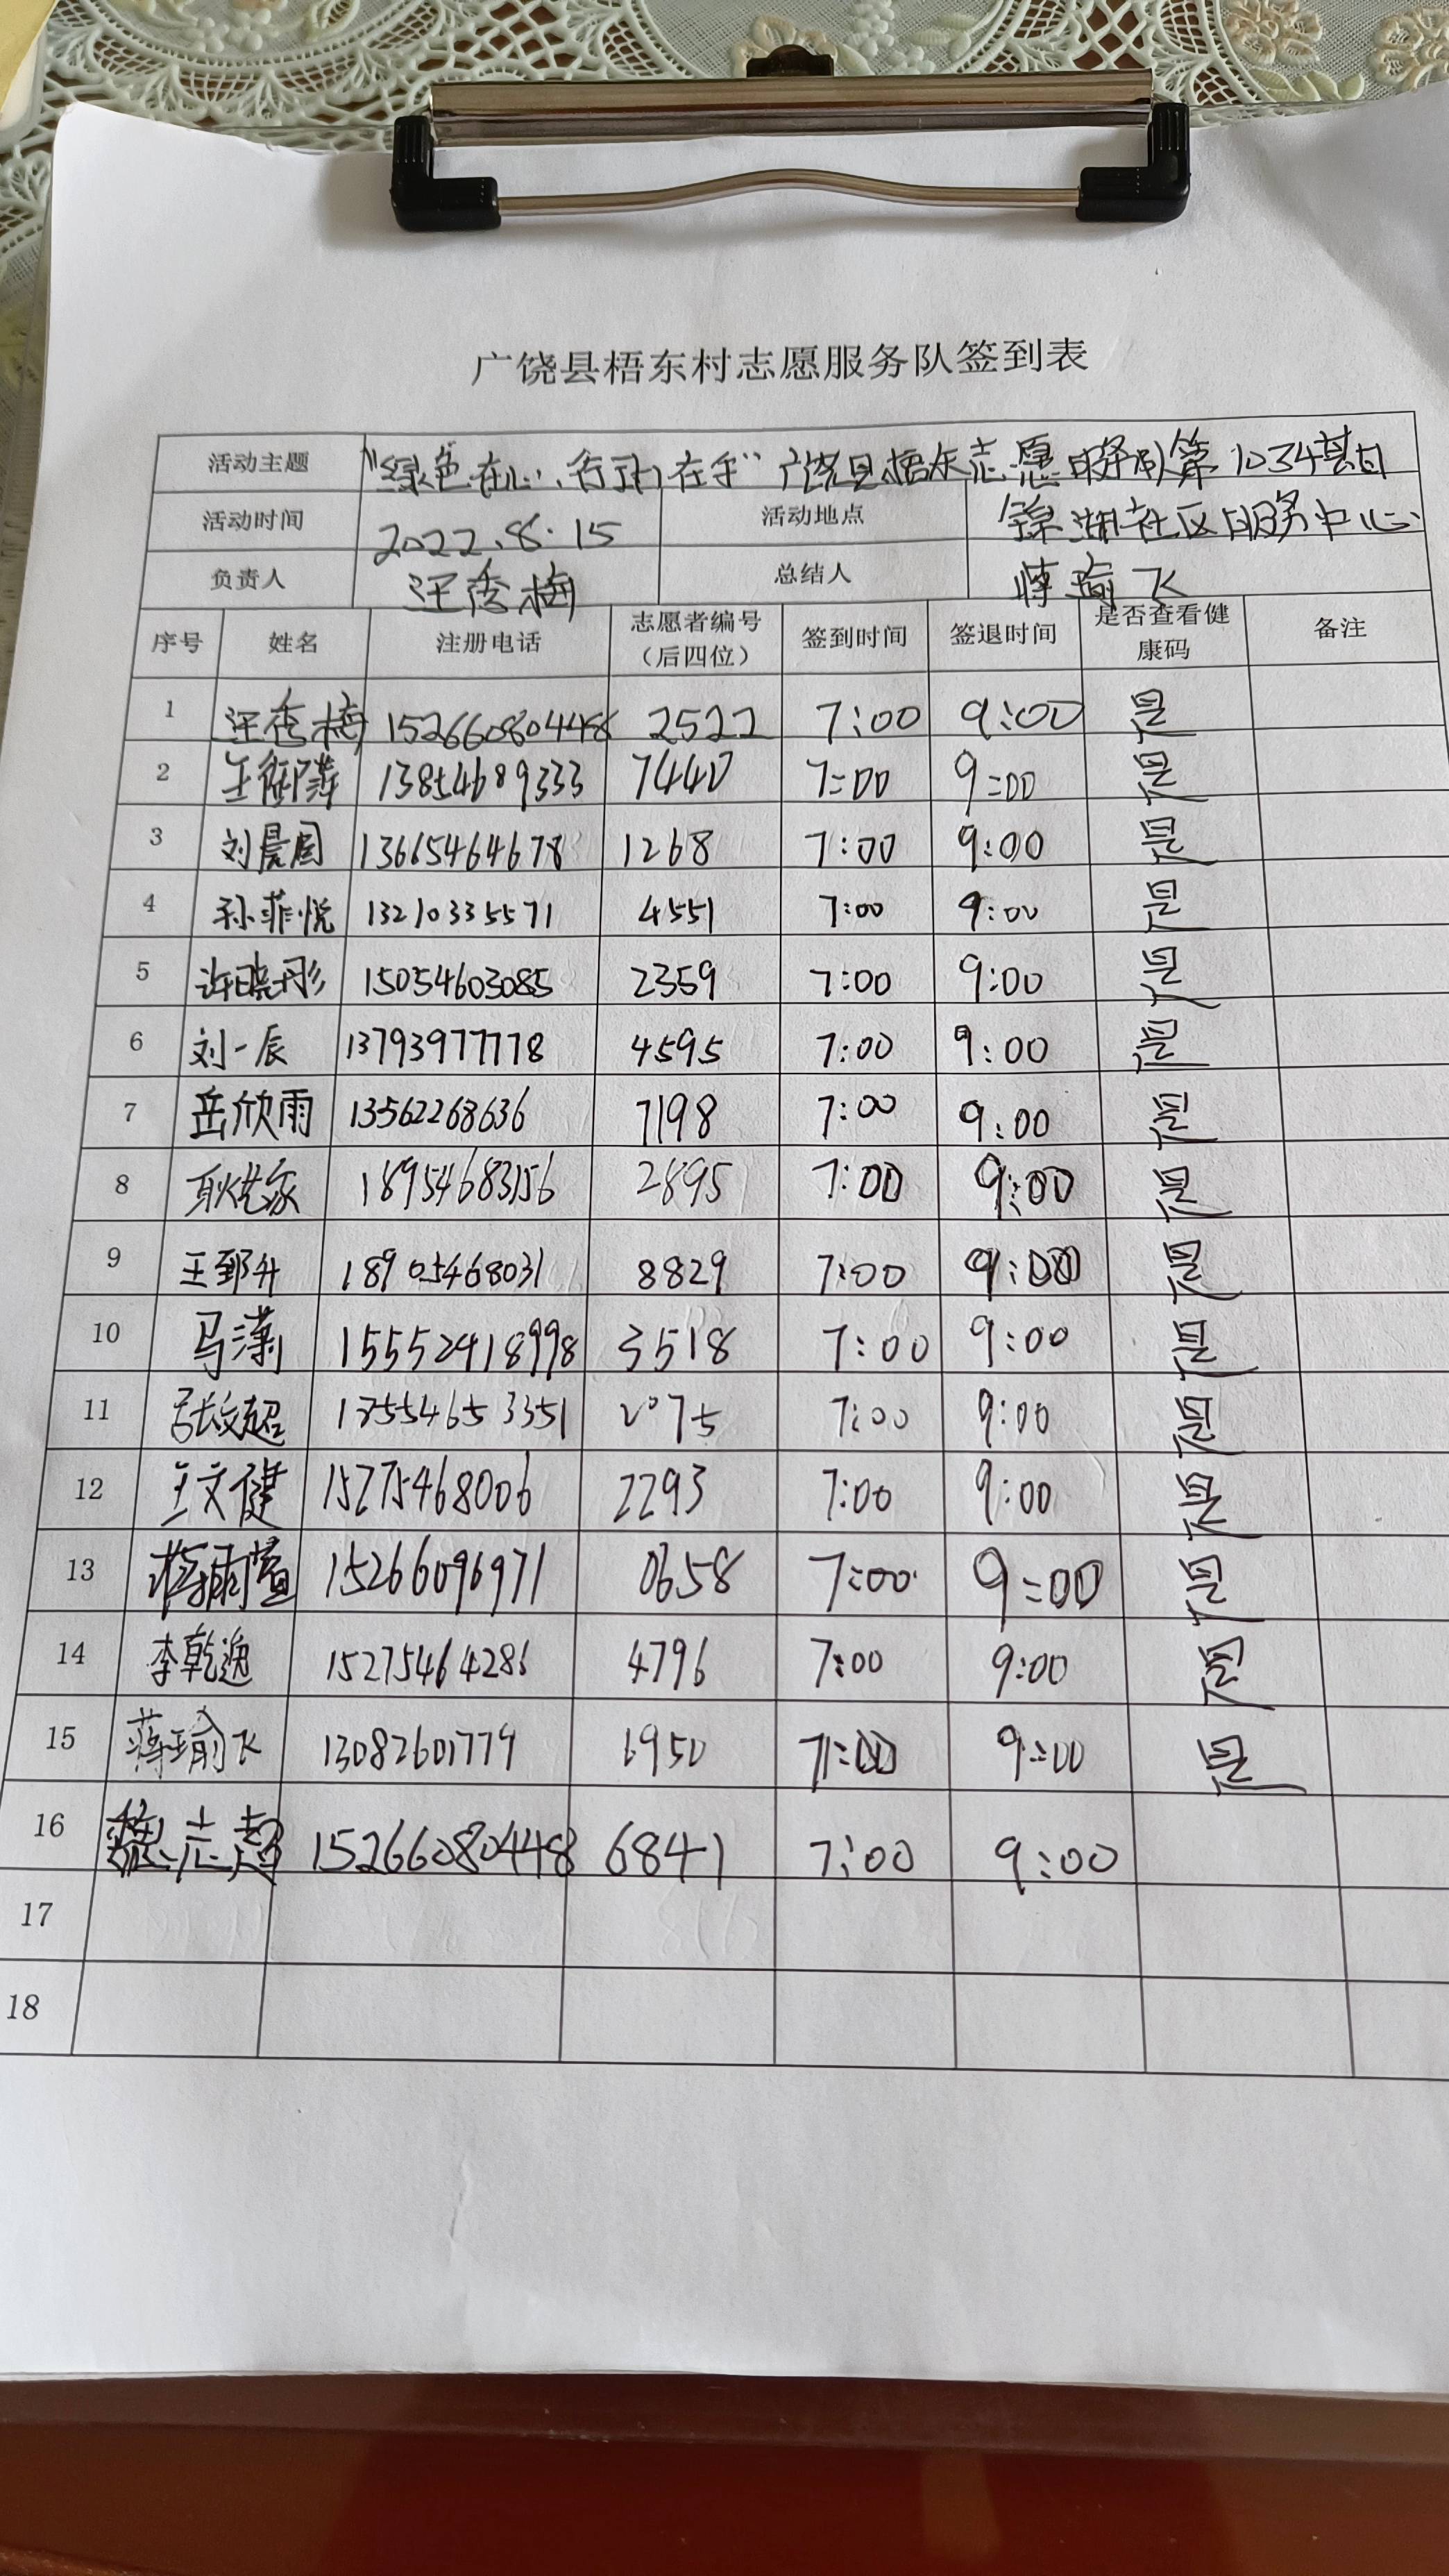 广饶县梧东村志愿服务队签到表
活动主题 "绿色在心,行动在手"广饶县梧东志愿服务队第1034期
活动时间 2022.8.15 活动地点 锦湖社区服务中心
负责人 汪秀梅 总结人 蒋瑜飞
序号 姓名 注册电话 志愿者编号（后四位） 签到时间 签退时间 是否查看健康码 备注
1 汪秀梅 152660804448 2522 7:00 9:00 是
2 13854689333 7440 7:00 9:00 是
3 刘晨周 13665464678 1268 7:00 9:00 是
4 孙菲悦 13210335571 4551 7:00 9:00 是
5 许晓彤 15054603085 2359 7:00 9:00 是
6 刘一辰 13793977778 4595 7:00 9:00 是
7 岳欣雨 13562268636 7198 7:00 9:00 是
8 18954683156 2895 7:00 9:00 是
9 王郅升 18905468031 8829 7:00 9:00 是
10 马潇 15552418998 3518 7:00 9:00 是
11 张文超 2075 7:00 9:00 是
12 王文健 15275468006 2293 7:00 9:00 是
13 蒋雨萱 15266096971 0658 7:00 9:00 是
14 李乾逸 15275464286 4796 7:00 9:00 是
15 蒋瑜飞 13082601779 6950 7:00 9:00 是
16 魏志超 152660804448 6841 7:00 9:00
17
18